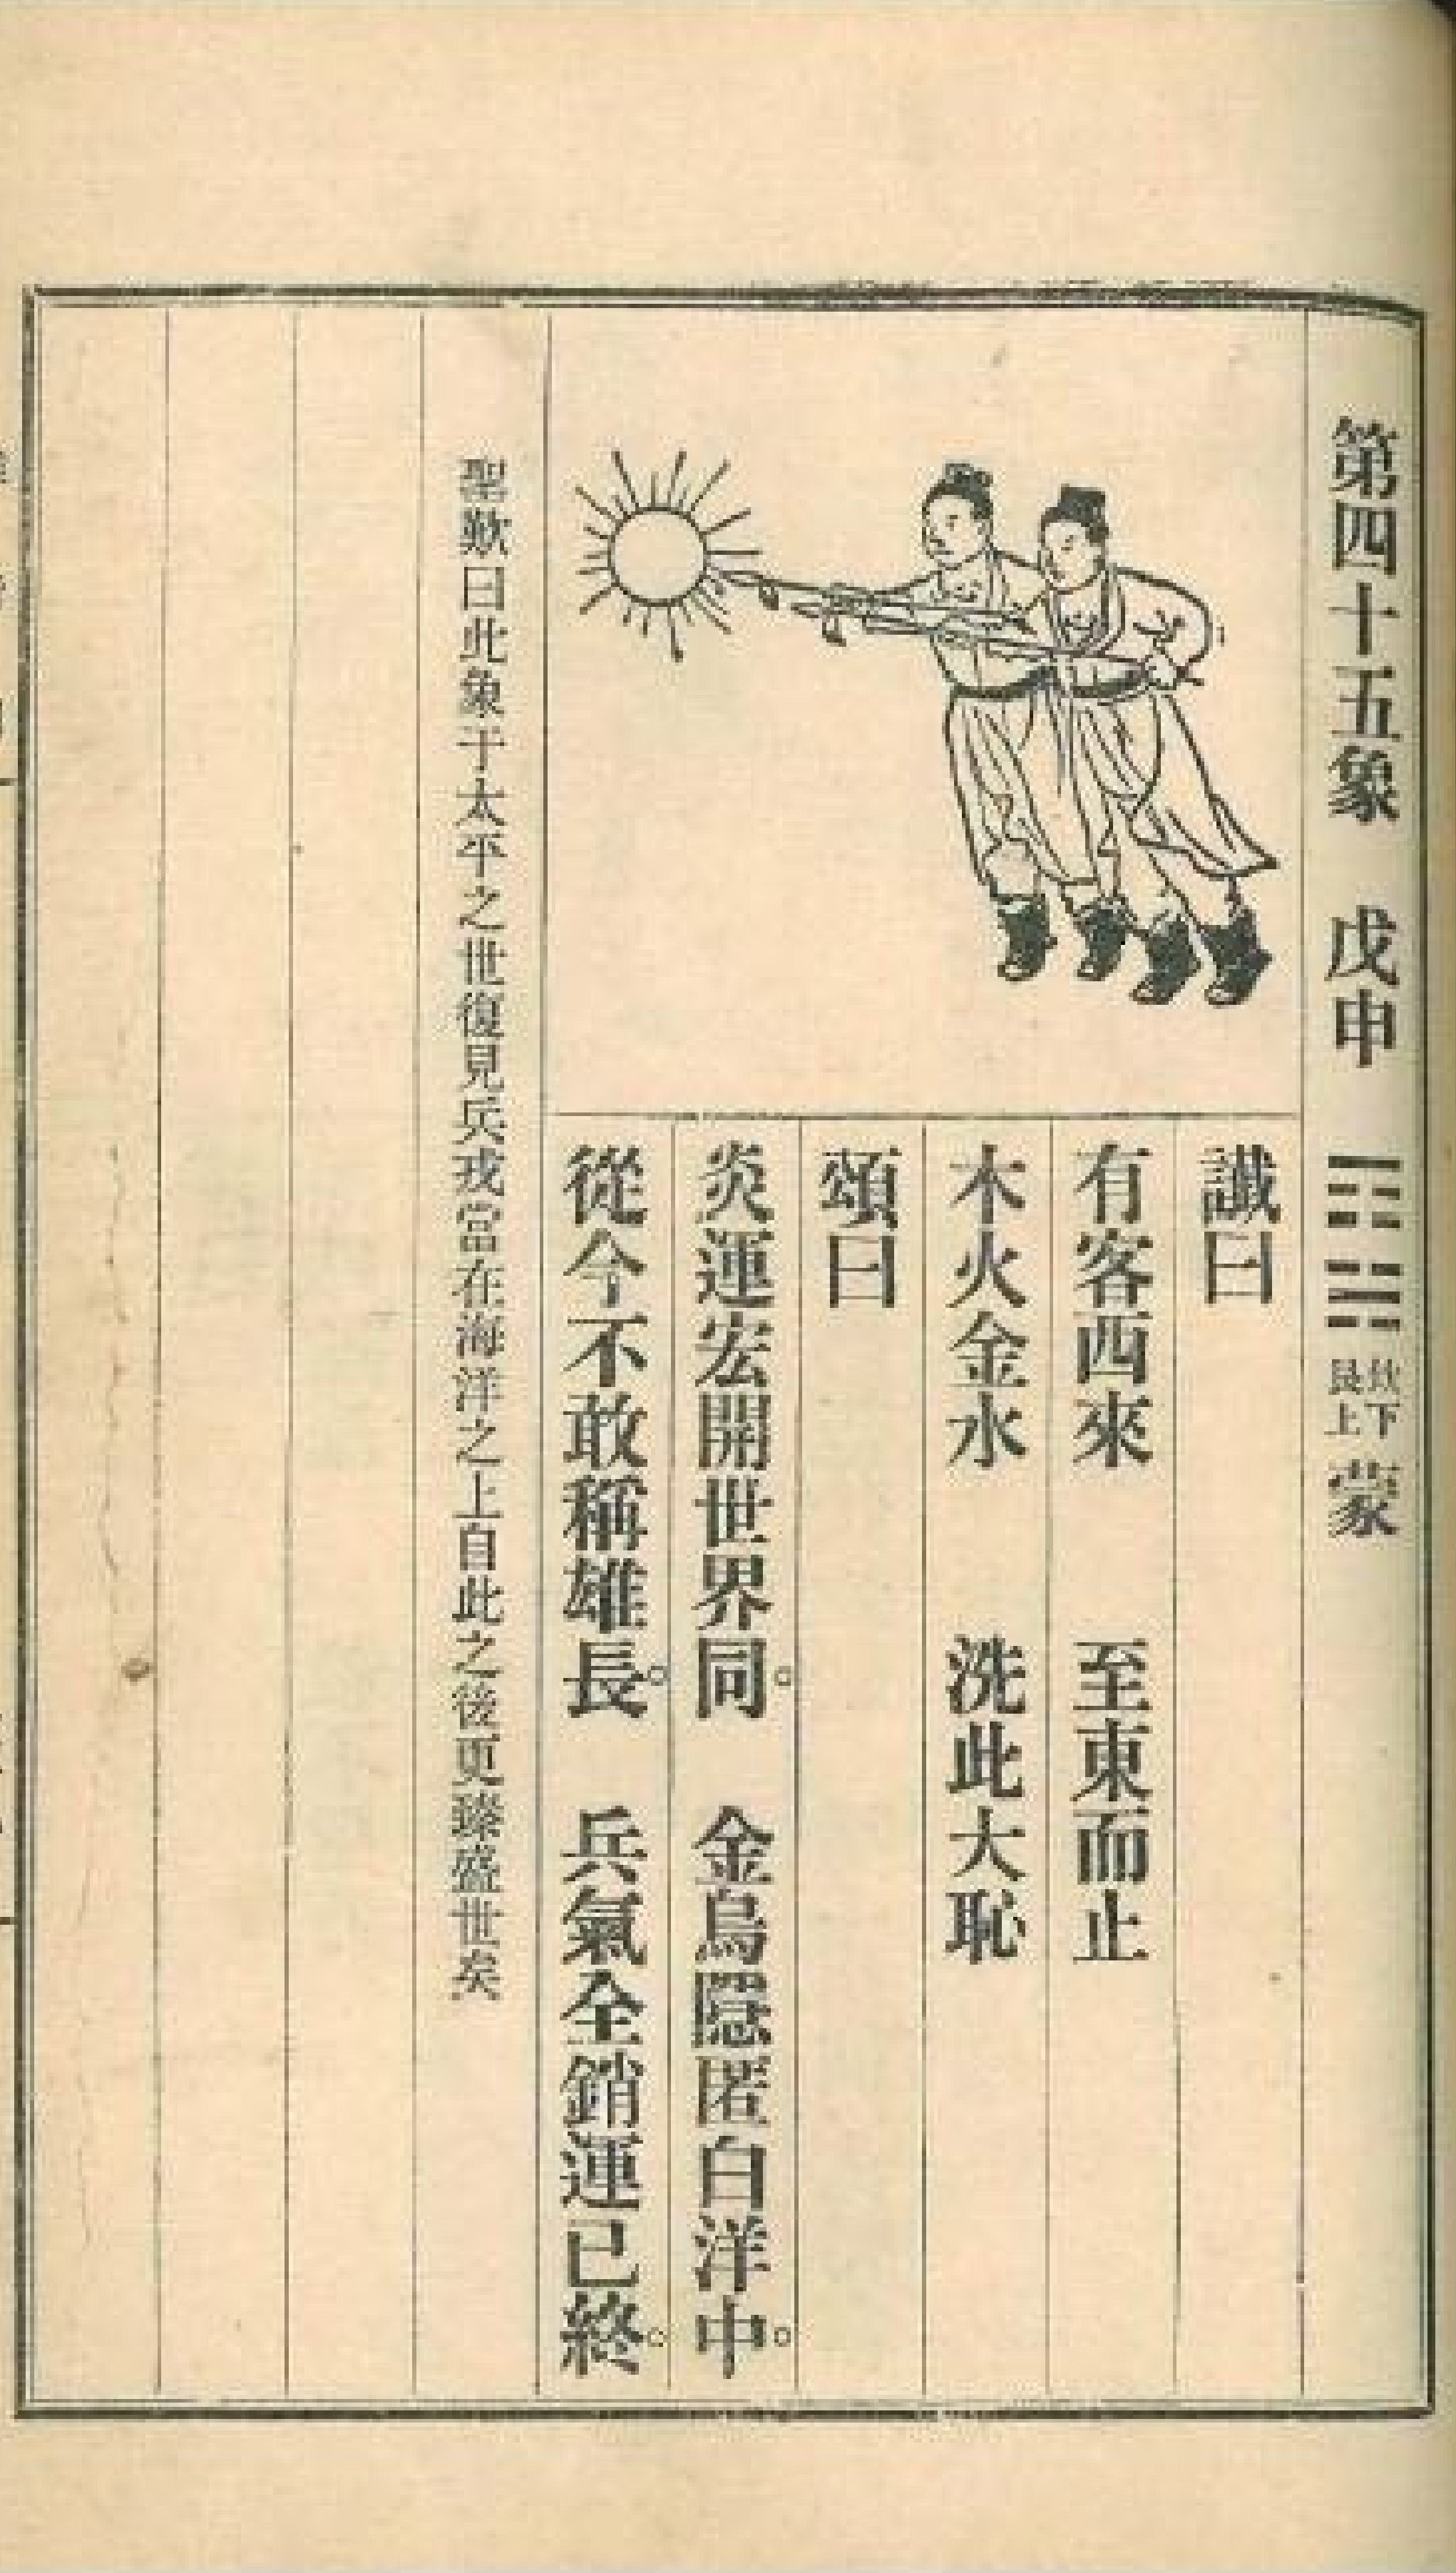 第四十五象 戊申 坎下艮上 蒙
讖曰
有客西來 至東而止
木火金水 洗此大恥
頌曰
炎運宏開世界同。 金烏隱匿白洋中。
從今不敢稱雄長。 兵氣全銷運已終。
聖歎曰此象于太平之世復見兵戎當在海洋之上自此之後更臻盛世矣